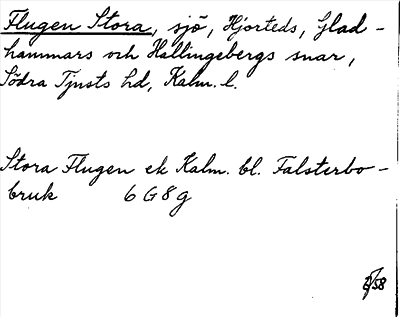 Flugen Stora, sjö, Hjorteds, Glad-
hammars och Hallingebergs snar,
Södra Tjusts hd, Kalm. l.
Stora Flugen ek Kalm. bl. Falsterbo-
bruk 6 G 8 g
/58